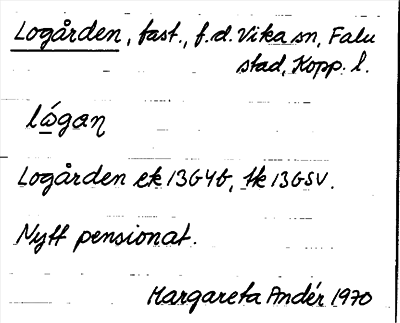 Logården, fast., f.d. Vika sn, Falu
stad, Kopp. l.
lógan
Logården ek 13G4b, tk 13GSV.
Nytt pensionat.
Margareta Andér 1970